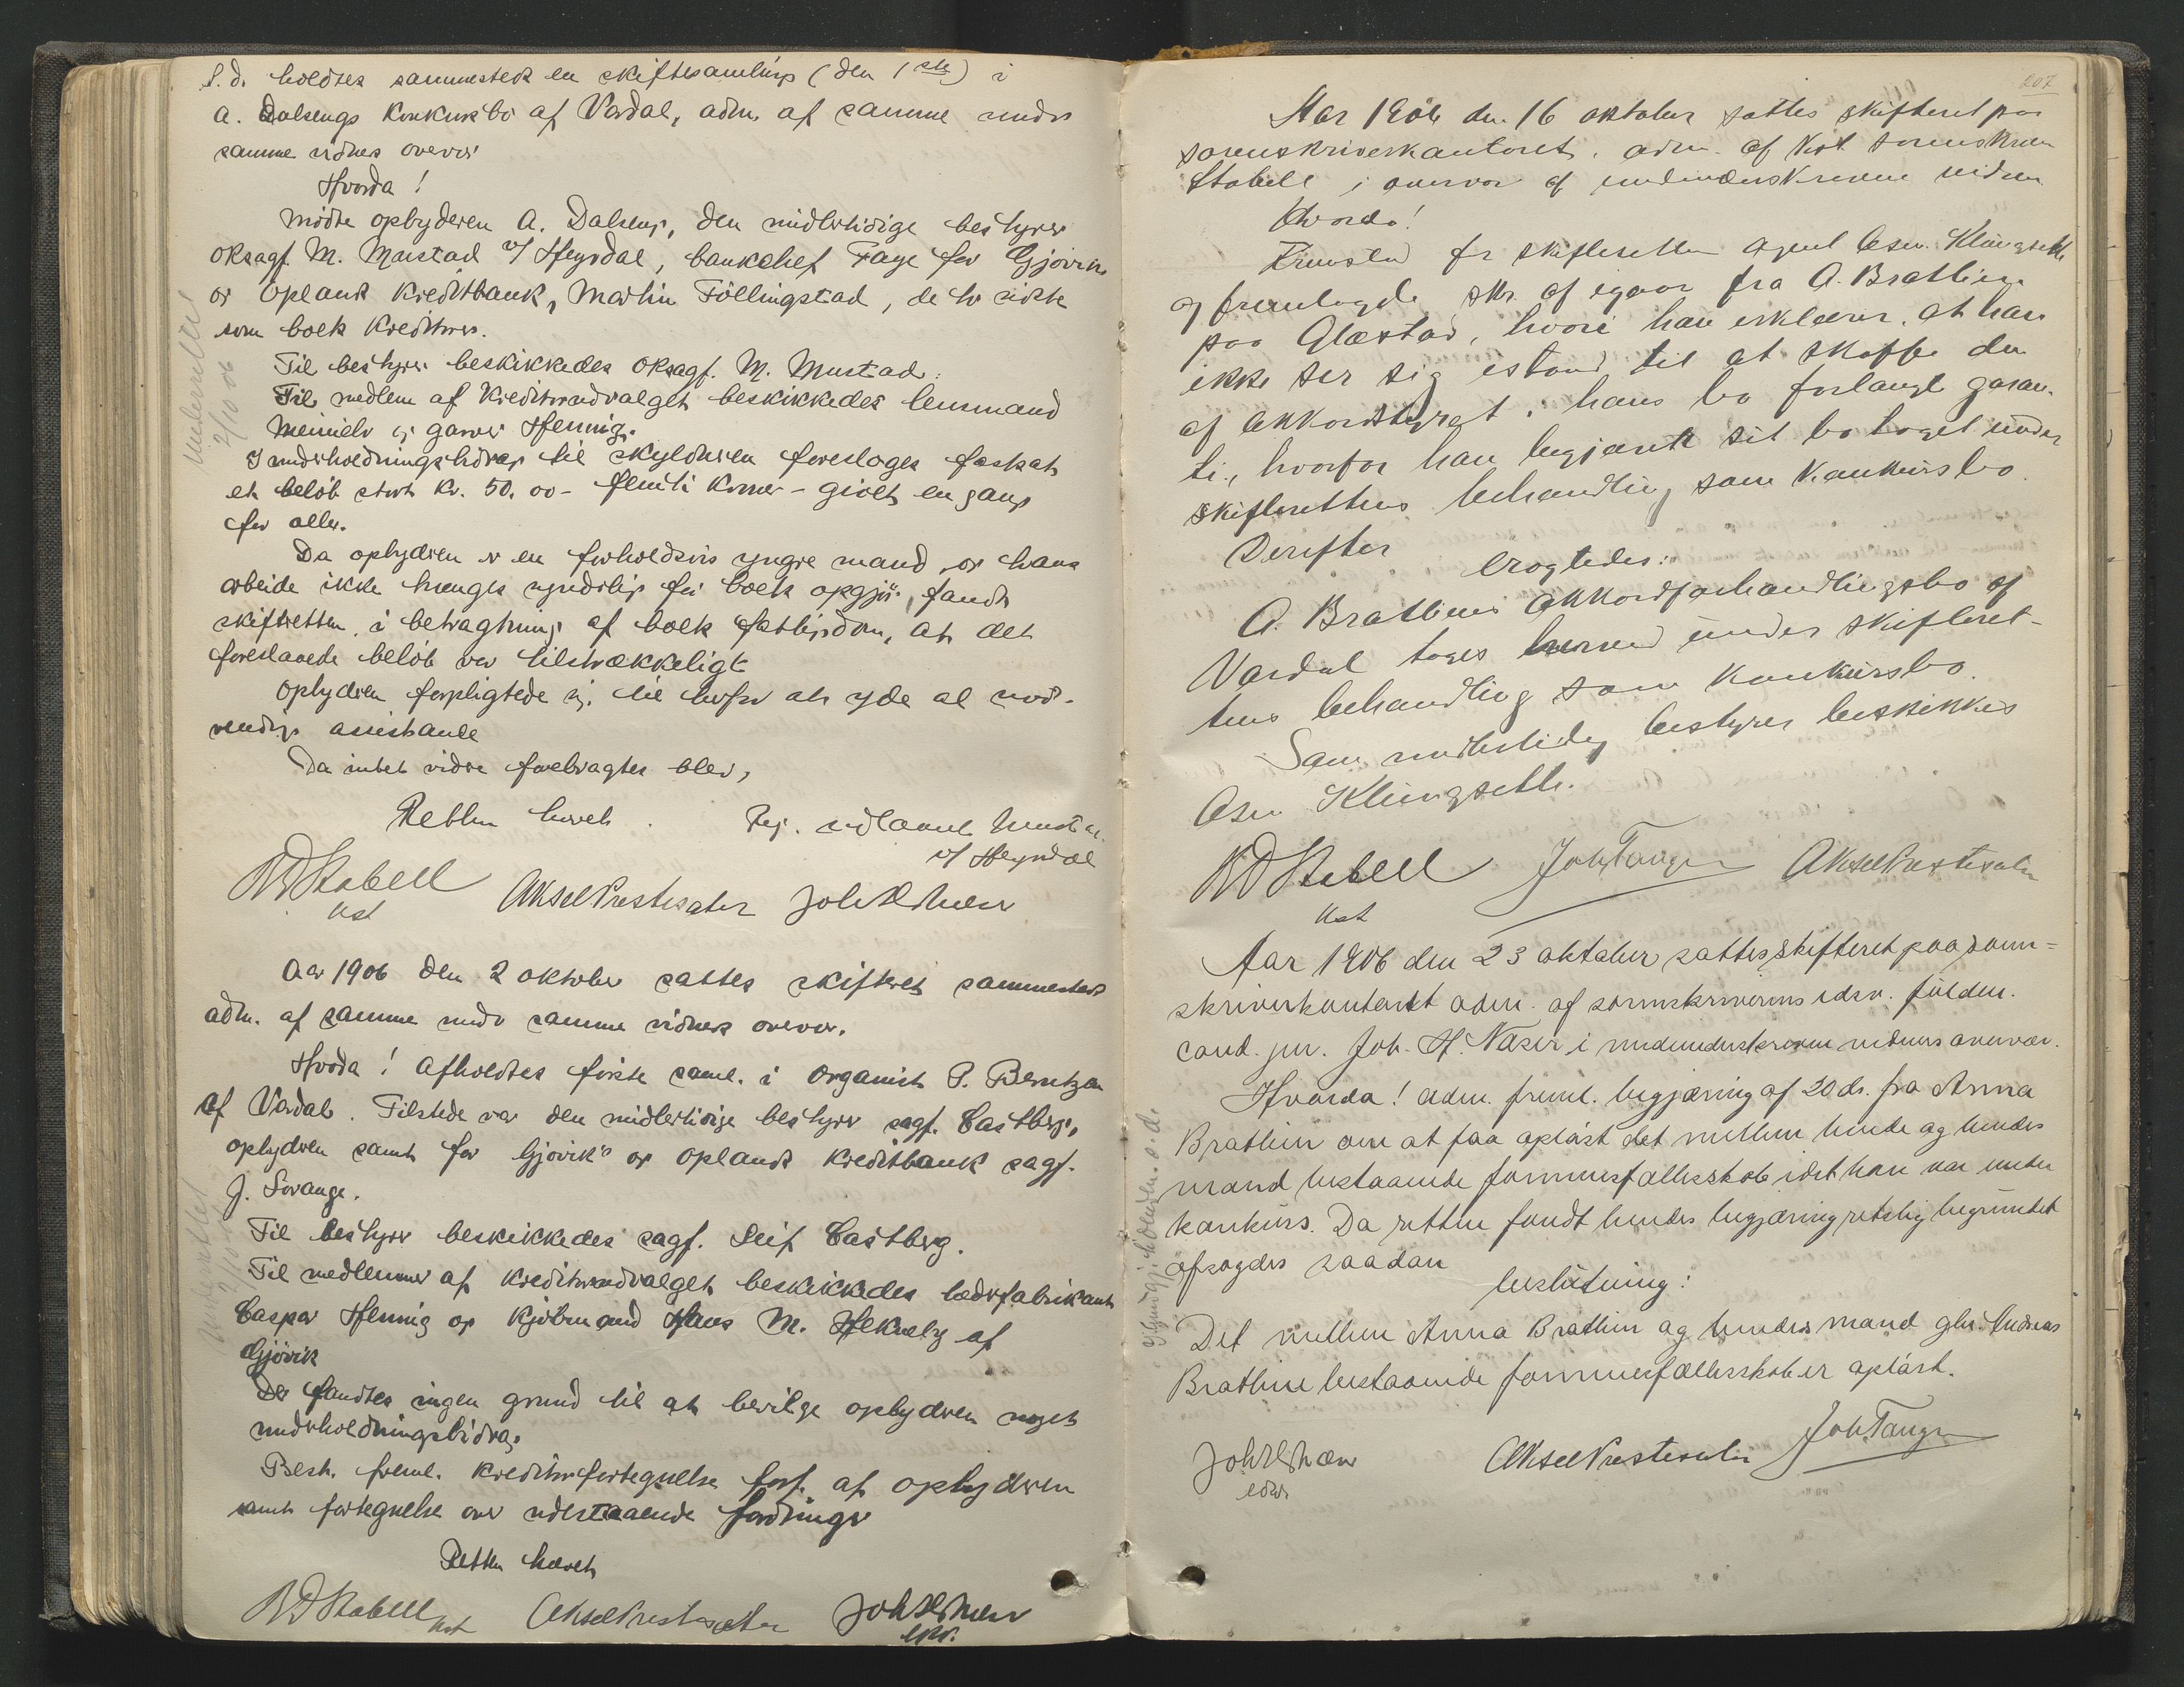 S. d. holdtes sammesteds en skiftesamling (den 1ste) i
A. Dalsengs konkursbo af Vardal, adm. af samme under
samme vidners overvær
Hvorda!
mødte opbyderen A. Dalseng, den midlertidige bestyrer
oksagf. M. Mustad v/ Heyerdal, bankchef Fage for Gjøvik
og Oplands Kreditbank, Martin Föllingstad, de to sidste
som boets kreditorer.
Til bestyrer beskikkedes oksagf. M. Mustad.
Til medlem af kreditorudvalget beskikkedes lensmand
og garver Hennig.
I underholdningsbidrag til skyldneren foresloges fastsat
et beløb stort kr. 50.00 - femti kroner - givet en gang
for alle.
Da opbyderen er en forholdsvis yngre mand, og hans
arbeide ikke trænges synderlig for boets opgjør, fandt
skifteretten, i betragtning af boets fattigdom, at det
foreslaaede beløb var tilstrækkeligt
Opbyderen forpligtede sig til herfor at yde al nød-
vendig assistance
Da intet videre foretraktes blev,
Retten hævet.
v/ Heyerdal
B D Stabell Aksel Prestesater Joh H Næser
kst
Aar 1906 den 2 oktober sattes skifteret sammesteds
adm. af samme under samme vidners overvær.
Hvorda! Afholdtes første saml. i organist P. Berntzen
af Vardal. Tilstede var den midlertidige bestyrer sagf. Castberg,
opbyderen samt for Gjøvik og Oplands Kreditbank sagf.
J. Sorange.
Til bestyrer beskikkedes sagf. Leif Castberg.
Til medlemmer af kreditorudvalget beskikkedes læderfabrikant
Caspar Hennig og kjøbmand Hans M. af
Gjøvik
Der fandtes ingen grund til at bevilge opbyderen noget
underholdningsbidrag.
Best. freml. kreditorfortegnelse forf. af opbyderen
samt fortegnelse over udestaaende fordringer
Retten hævet
B D Stabell kst Aksel Prestesæter Joh H Næser
edsv.
207
Aar 1906 den 16 oktober sattes skifteret paa
sorenskriverkontoret, adm. af kst sorenskriver
Stabell i overvær af undunderskrevne vidner
Hvorda!
Fremstod for skifteretten agent Osw. Klingseth
og fremlagde skr. af igaar fra A. Brathen
paa Glæstad, hvori han erklærer, at han
ikke ser sig istand til at skaffe den
af akkordstyret i hans bo forlangt garan-
ti, hvorfor han begjærte sit bo taget under
skifterettens behandling som konkursbo.
Derefter
eragtedes:
A. Brathens akkordforhandlingsbo af
Vardal tages herved under skifteret-
tens behandling som konkursbo.
Som midlertidig bestyrer beskikkes
Osw Klingseth.
B D Stabell Joh Tanger Aksel Prestesater
kst
Aar 1906 den 23 oktober sattes skifteret paa soren=
skriverkontoret adm. af sorenskriverens edsv. fuldm.
cand. jur. Joh. H. Næser i undunderskrevne vidners overvær.
Hvorda! adm. freml. begjæring af 20 ds. fra Anna
Brathen om at faa opløst det mellem hende og hendes
mand bestaaende formuesfællesskab idet han var under
konkurs. Da retten fandt hendes begjæring retslig begrundet
afsagdes saadan
beslutning:
Det mellem Anna Brathen og hendes mand gbr. Andreas
Brathen bestaaende formuesfællesskab er opløst.
Joh H Næser Aksel Prestesater Joh Tanger
edsv.